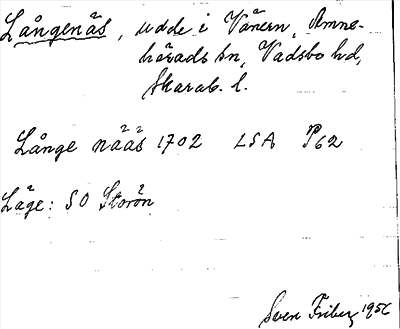 Långenäs, udde i Vänern, Amne-
härads sn, Vadsbo hd,
Skarab. l.
Långe nääs 1702 LSA P62
Läge: SO Storön
Sven Friberg 1956